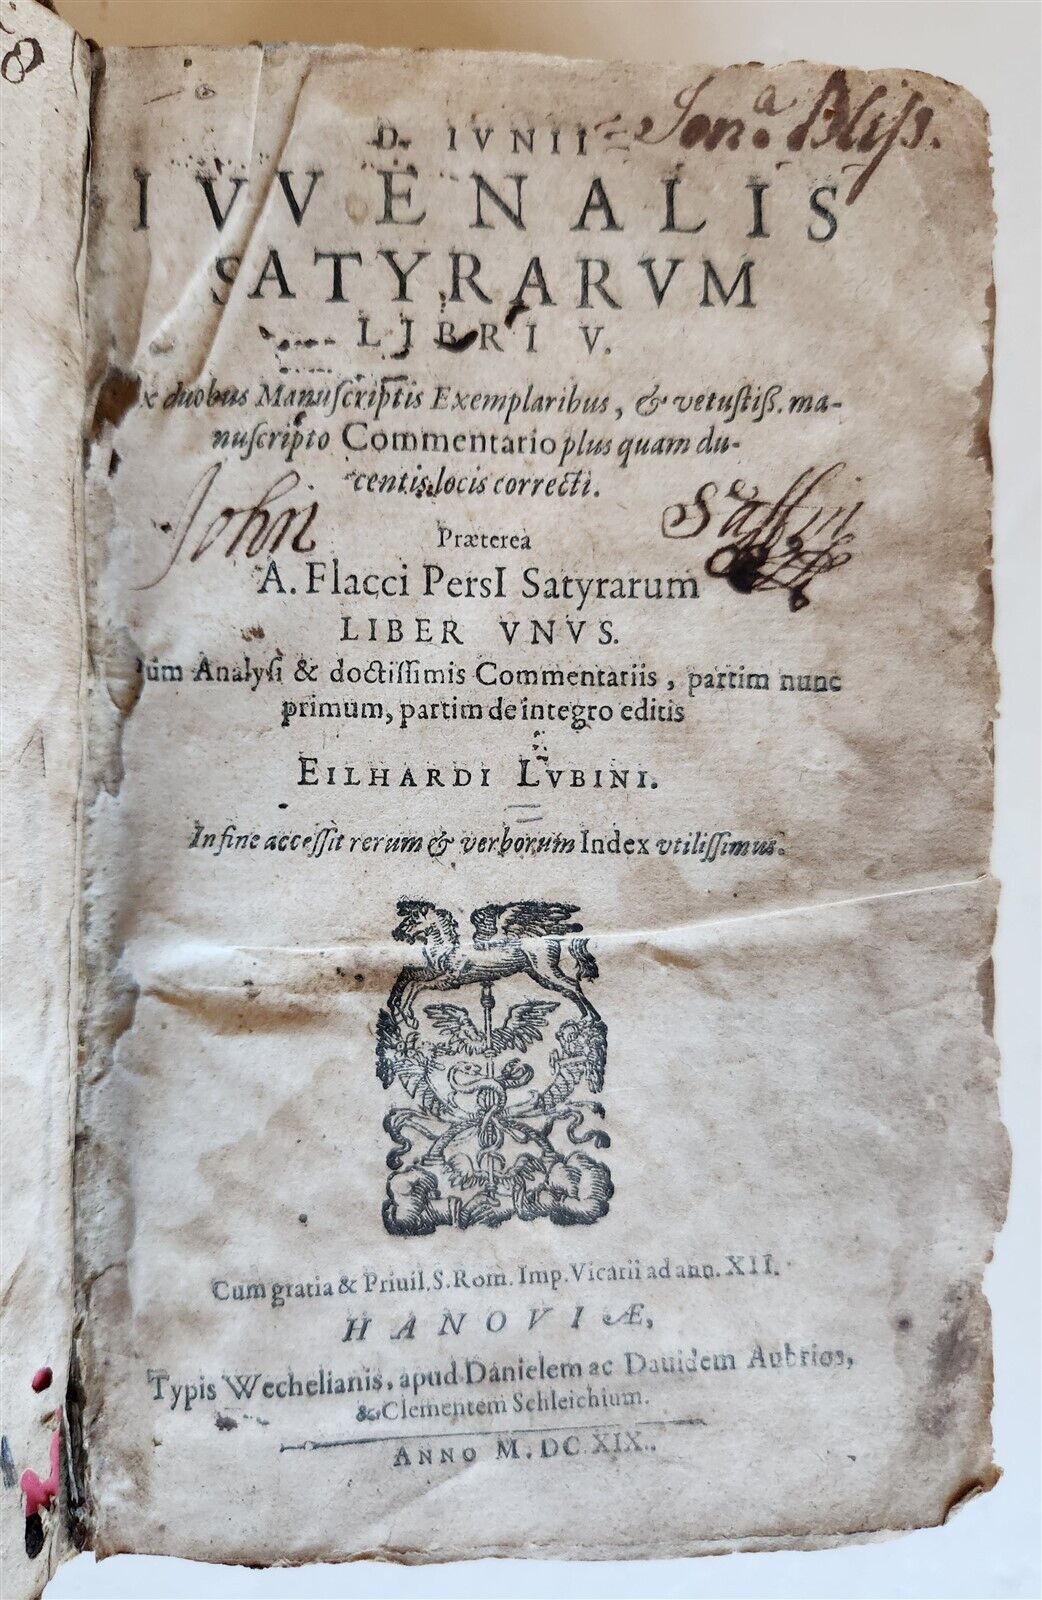 8
Jon.ª Bliſs.
D. IVNII
IVVENALIS
SATYRARVM
LIBRI V.
duobus Manuſcriptis Exemplaribus, & vetuſtiß. ma-
nuſcripto Commentario plus quam du-
centis locis correcti.
John Saffin
Præterea
A. Flacci PersI Satyrarum
LIBER VNVS.
Analyſi & doctiſſimis Commentariis, partim nunc
primum, partim de integro editis
EILHARDI LVBINI.
In fine acceſſit rerum & verborum Index vtiliſſimus.
Cum gratia & Priuil. S. Rom. Imp. Vicarii ad ann. XII.
HANOVIÆ,
Typis Wechelianis, apud Danielem ac Dauidem Aubrios,
& Clementem Schleichium.
ANNO M. DC XIX.